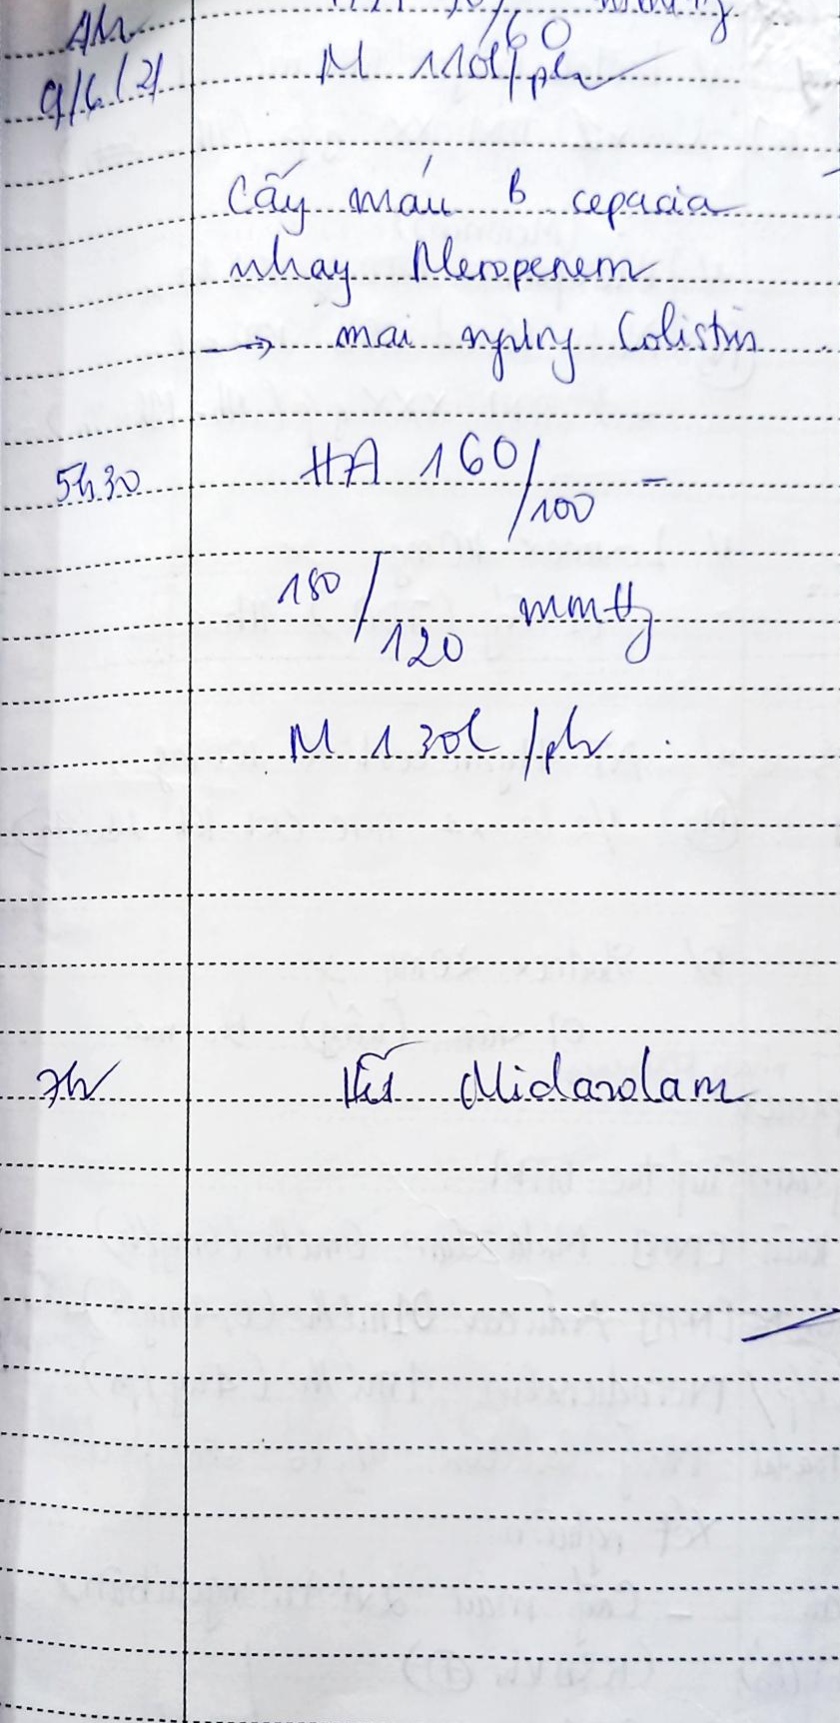 /60
M 110l/ph
9/6/21
Cấy máu B cepacia
nhạy Meropenem
→ mai ngưng Colistin
5h30 HA 160/100 -
180/120 mmHg
M 130l/ph
7h Midazolam